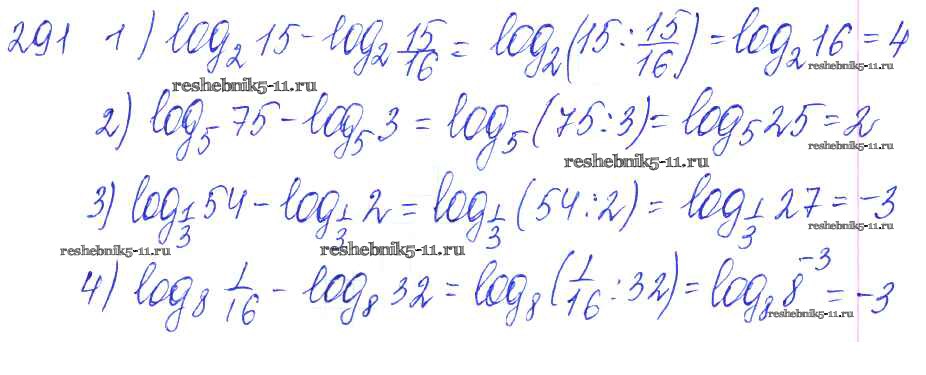 291 1) log₂ 15 - log₂ 15/16 = log₂ (15 : 15/16) = log₂ 16 = 4
reshebnik5-11.ru reshebnik5-11.ru
2) log₅ 75 - log₅ 3 = log₅ (75 : 3) = log₅ 25 = 2
reshebnik5-11.ru reshebnik5-11.ru
3) log_{1/3} 54 - log_{1/3} 2 = log_{1/3} (54 : 2) = log_{1/3} 27 = -3
reshebnik5-11.ru reshebnik5-11.ru reshebnik5-11.ru
4) log₈ 1/16 - log₈ 32 = log₈ (1/16 : 32) = log₈ 8⁻³ = -3
reshebnik5-11.ru